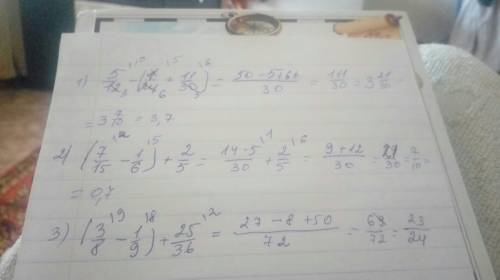 1) 5/12 - (1/24 + 11/30) = 50-5+66/30 = 111/30 = 3 21/30 =
= 3 7/10 = 3,7
2) (7/15 - 1/6) + 2/5 = 14-5/30 + 2/5 = 9+12/30 = 21/30 = 7/10 =
= 0,7
3) (3/8 - 1/9) + 25/36 = 27-8+50/72 = 69/72 = 23/24